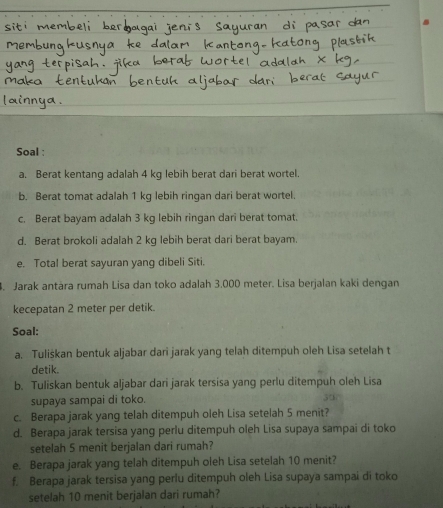 siti membeli berbagai jenis sayuran di pasar dan
membungkusnya ke dalam kantong-katong plastik
yang terpisah. jika berat wortel adalah x kg,
maka tentukan bentuk aljabar dari berat sayur
lainnya.
Soal :
a. Berat kentang adalah 4 kg lebih berat dari berat wortel.
b. Berat tomat adalah 1 kg lebih ringan dari berat wortel.
c. Berat bayam adalah 3 kg lebih ringan dari berat tomat.
d. Berat brokoli adalah 2 kg lebih berat dari berat bayam.
e. Total berat sayuran yang dibeli Siti.
Jarak antara rumah Lisa dan toko adalah 3.000 meter. Lisa berjalan kaki dengan
kecepatan 2 meter per detik.
Soal:
a. Tuliskan bentuk aljabar dari jarak yang telah ditempuh oleh Lisa setelah t
detik.
b. Tuliskan bentuk aljabar dari jarak tersisa yang perlu ditempuh oleh Lisa
supaya sampai di toko.
c. Berapa jarak yang telah ditempuh oleh Lisa setelah 5 menit?
d. Berapa jarak tersisa yang perlu ditempuh oleh Lisa supaya sampai di toko
setelah 5 menit berjalan dari rumah?
e. Berapa jarak yang telah ditempuh oleh Lisa setelah 10 menit?
f. Berapa jarak tersisa yang perlu ditempuh oleh Lisa supaya sampai di toko
setelah 10 menit berjalan dari rumah?